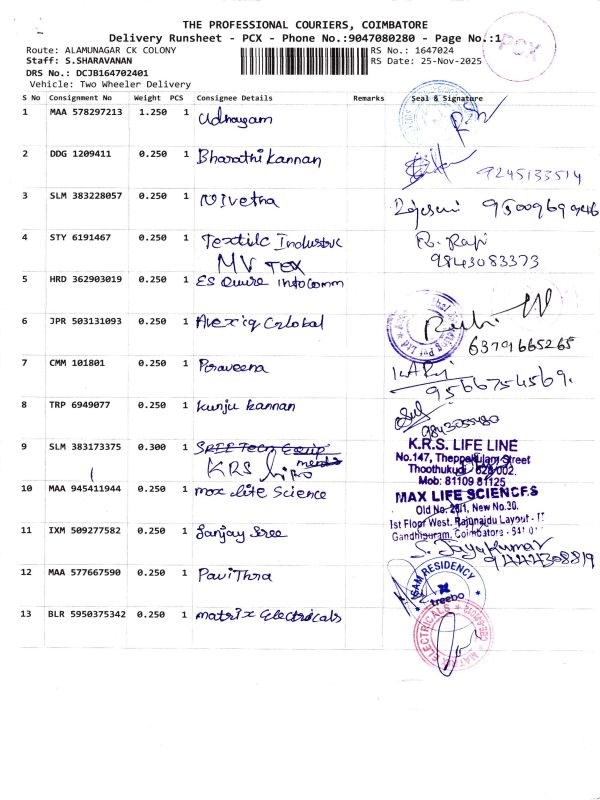 THE PROFESSIONAL COURIERS, COIMBATORE
Delivery Runsheet - PCX - Phone No.:9047080280 - Page No.:1
PCX
Route: ALAMUNAGAR CK COLONY
RS No.: 1647024
Staff: S.SHARAVANAN
RS Date: 25-Nov-2025
DRS No.: DCJB164702401
Vehicle: Two Wheeler Delivery
S No Consignment No Weight PCS Consignee Details Remarks Seal & Signature
1 MAA 578297213 1.250 1 Udhayam
2 DDG 1209411 0.250 1 Bharathi Kannan 9245133514
3 SLM 383228057 0.250 1 Nivetha
4 STY 6191467 0.250 1 Textile R. Raji
MV TEX 9843083373
5 HRD 362903019 0.250 1
6 JPR 503131093 0.250 1 Global
6379665265
7 CMM 101801 0.250 1 Poraveena
9566754569.
8 TRP 6949077 0.250 1 Kunju Kannan
9 SLM 383173375 0.300 1
KRS
K.R.S. LIFE LINE
No.147, Theppakulam Street
Thoothukudi - 628 002.
Mob: 81109 81125
10 MAA 945411944 0.250 1 max lite Science
MAX LIFE SCIENCES
Old No. 28/1, New No.30,
1st Floor West, Rajunaidu Layout -
Gandhipuram, Coimbatore - 641 01
11 IXM 509277582 0.250 1 Sanjay Sree
S. Jayakumar
12 MAA 577667590 0.250 1 Pavithra
RESIDENCY
treebo
13 BLR 5950375342 0.250 1 matrix Electricals
ELECTRICALS